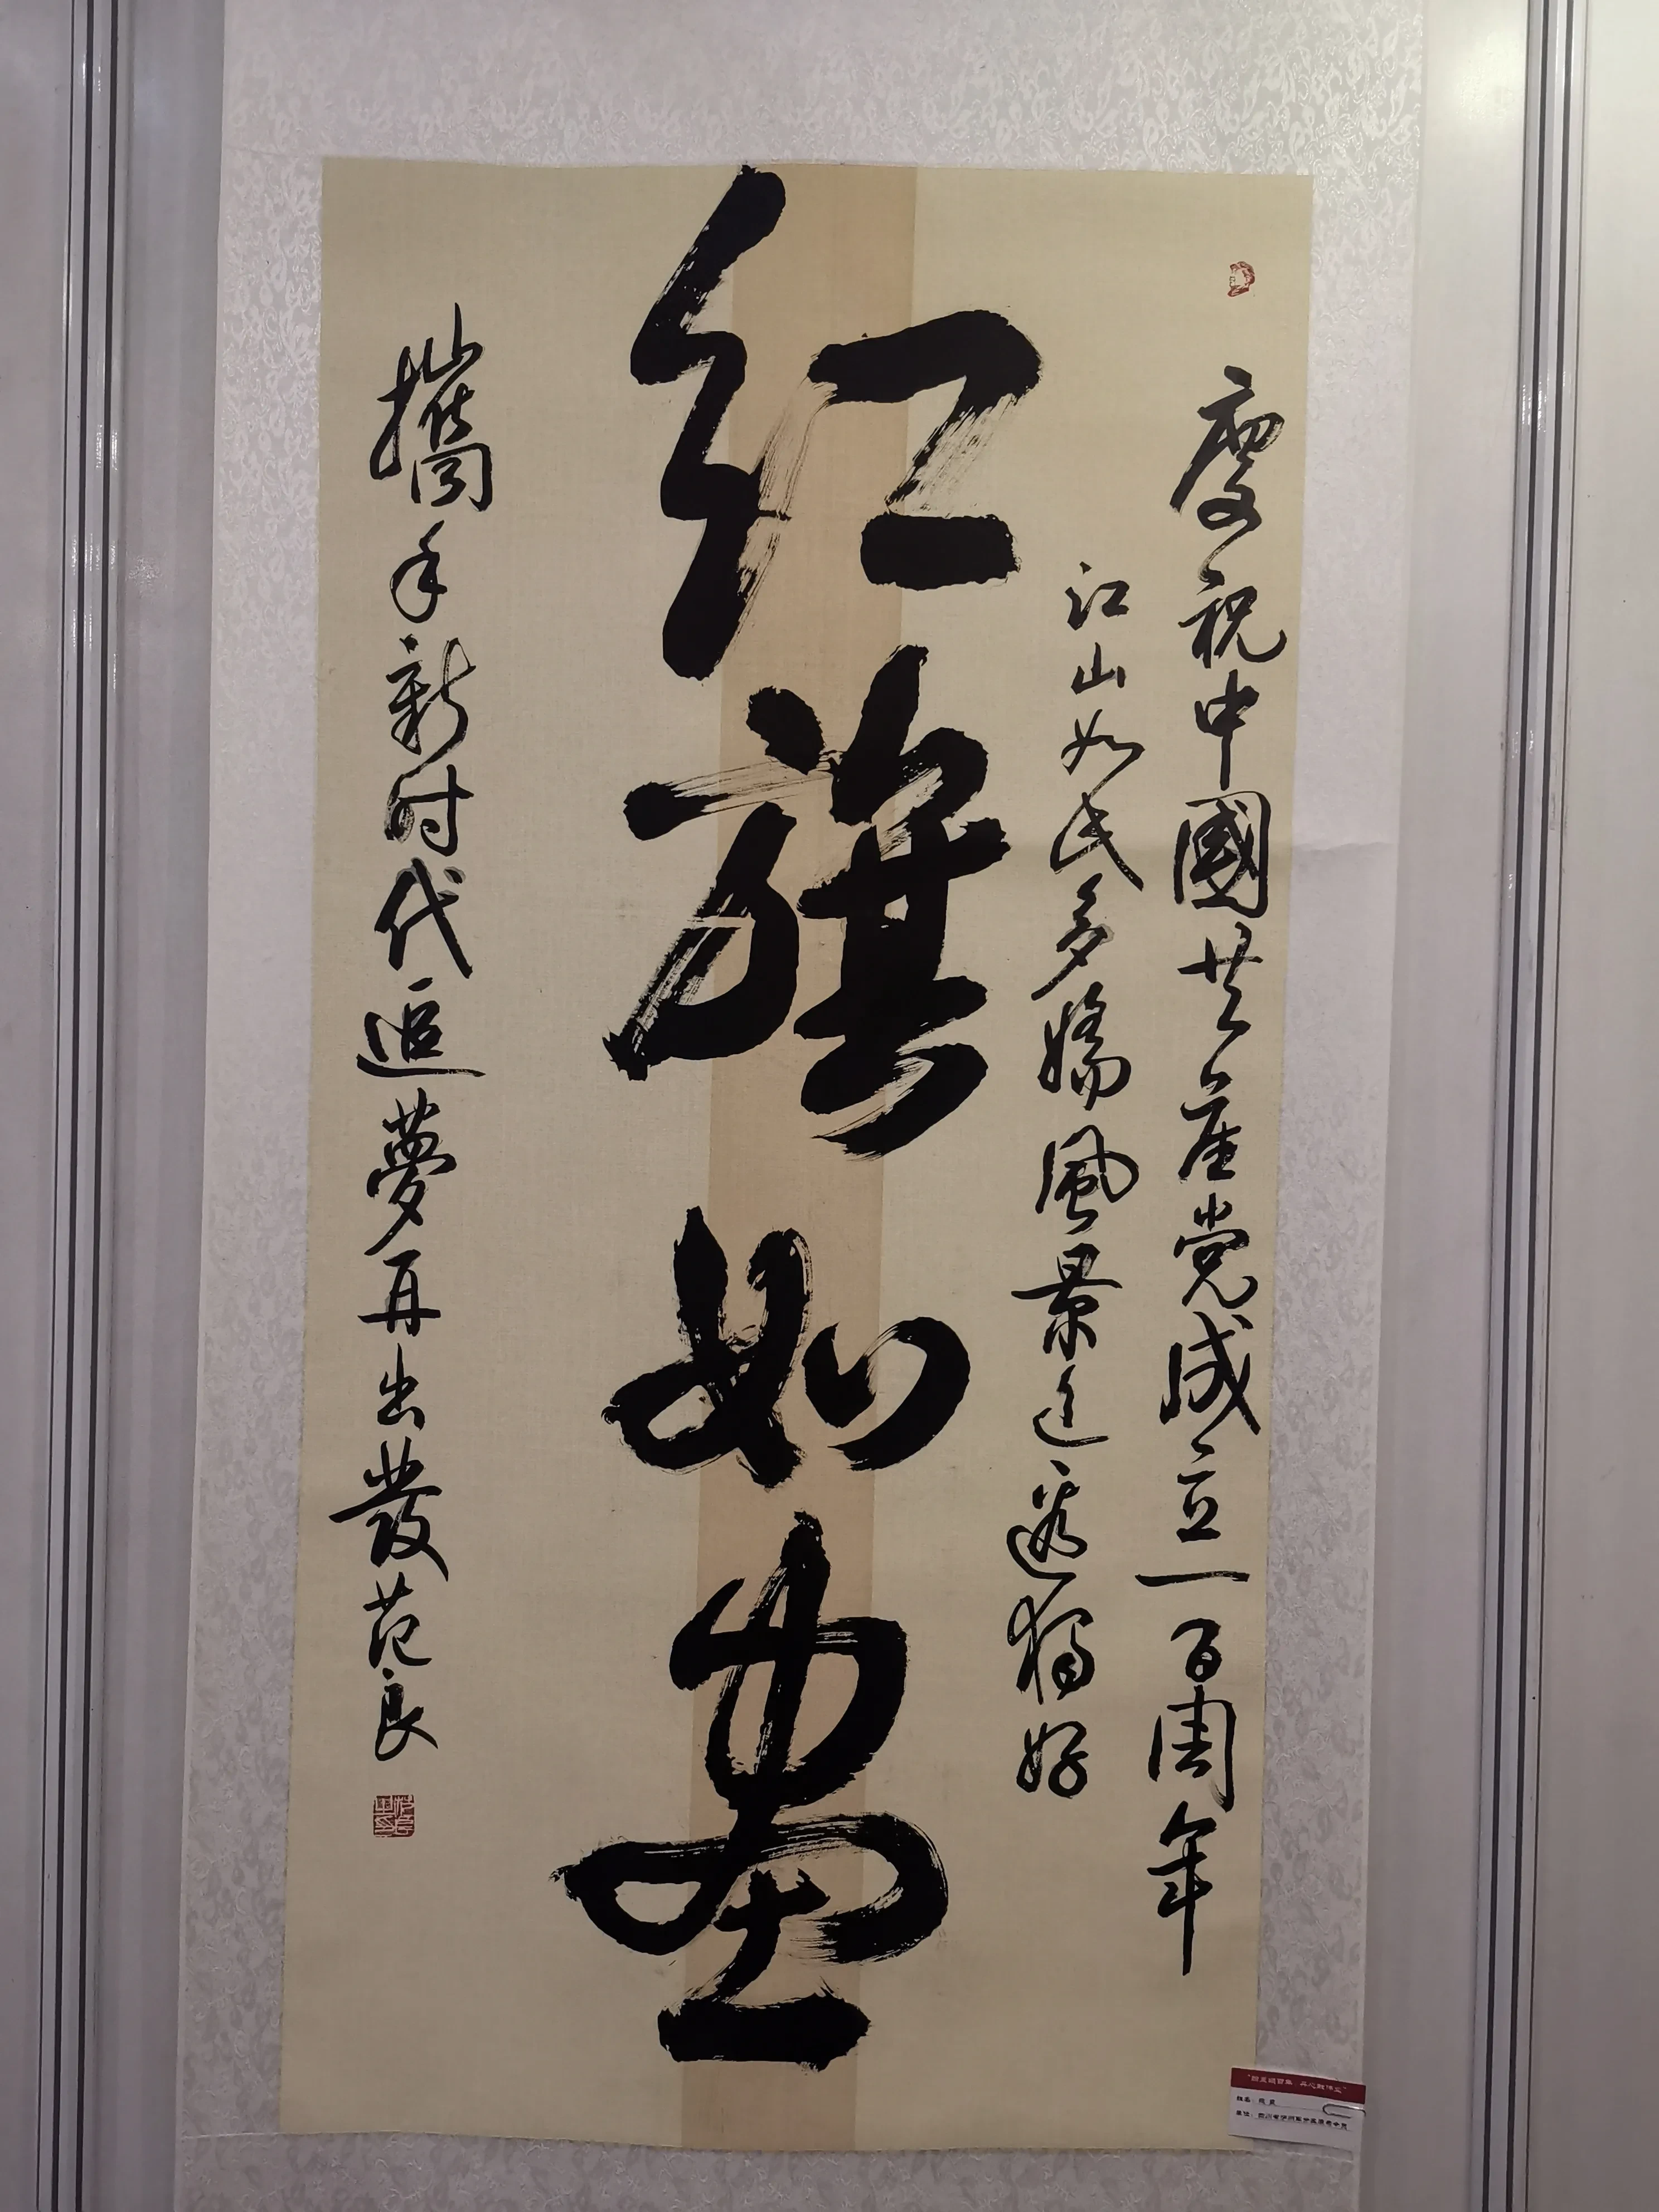 慶祝中國共產党成立一百周年
江山如此多嬌風景這邊獨好
紅旗如畫
攜手新时代追夢再出發范良
姓名：范良